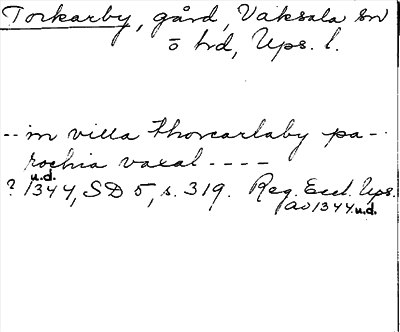 Torkarby, gård, Vaksala sn
ö hd, Ups. l.
-- in villa thorcarlaby pa-
rochia vaxal ----
u.d.
? 1344, SD 5, s. 319. Reg. Eccl. Ups.
av 1344 u.d.